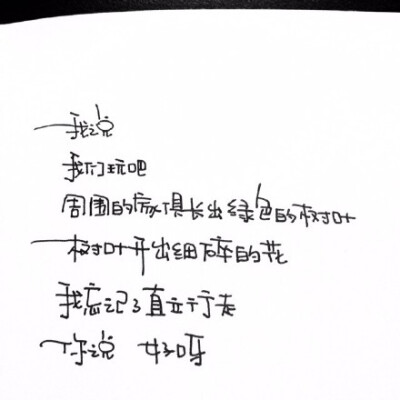 我说
我们玩吧
周围的家具长出绿色的树叶
树叶开出细碎的花
我忘记了直立行走
你说 好呀